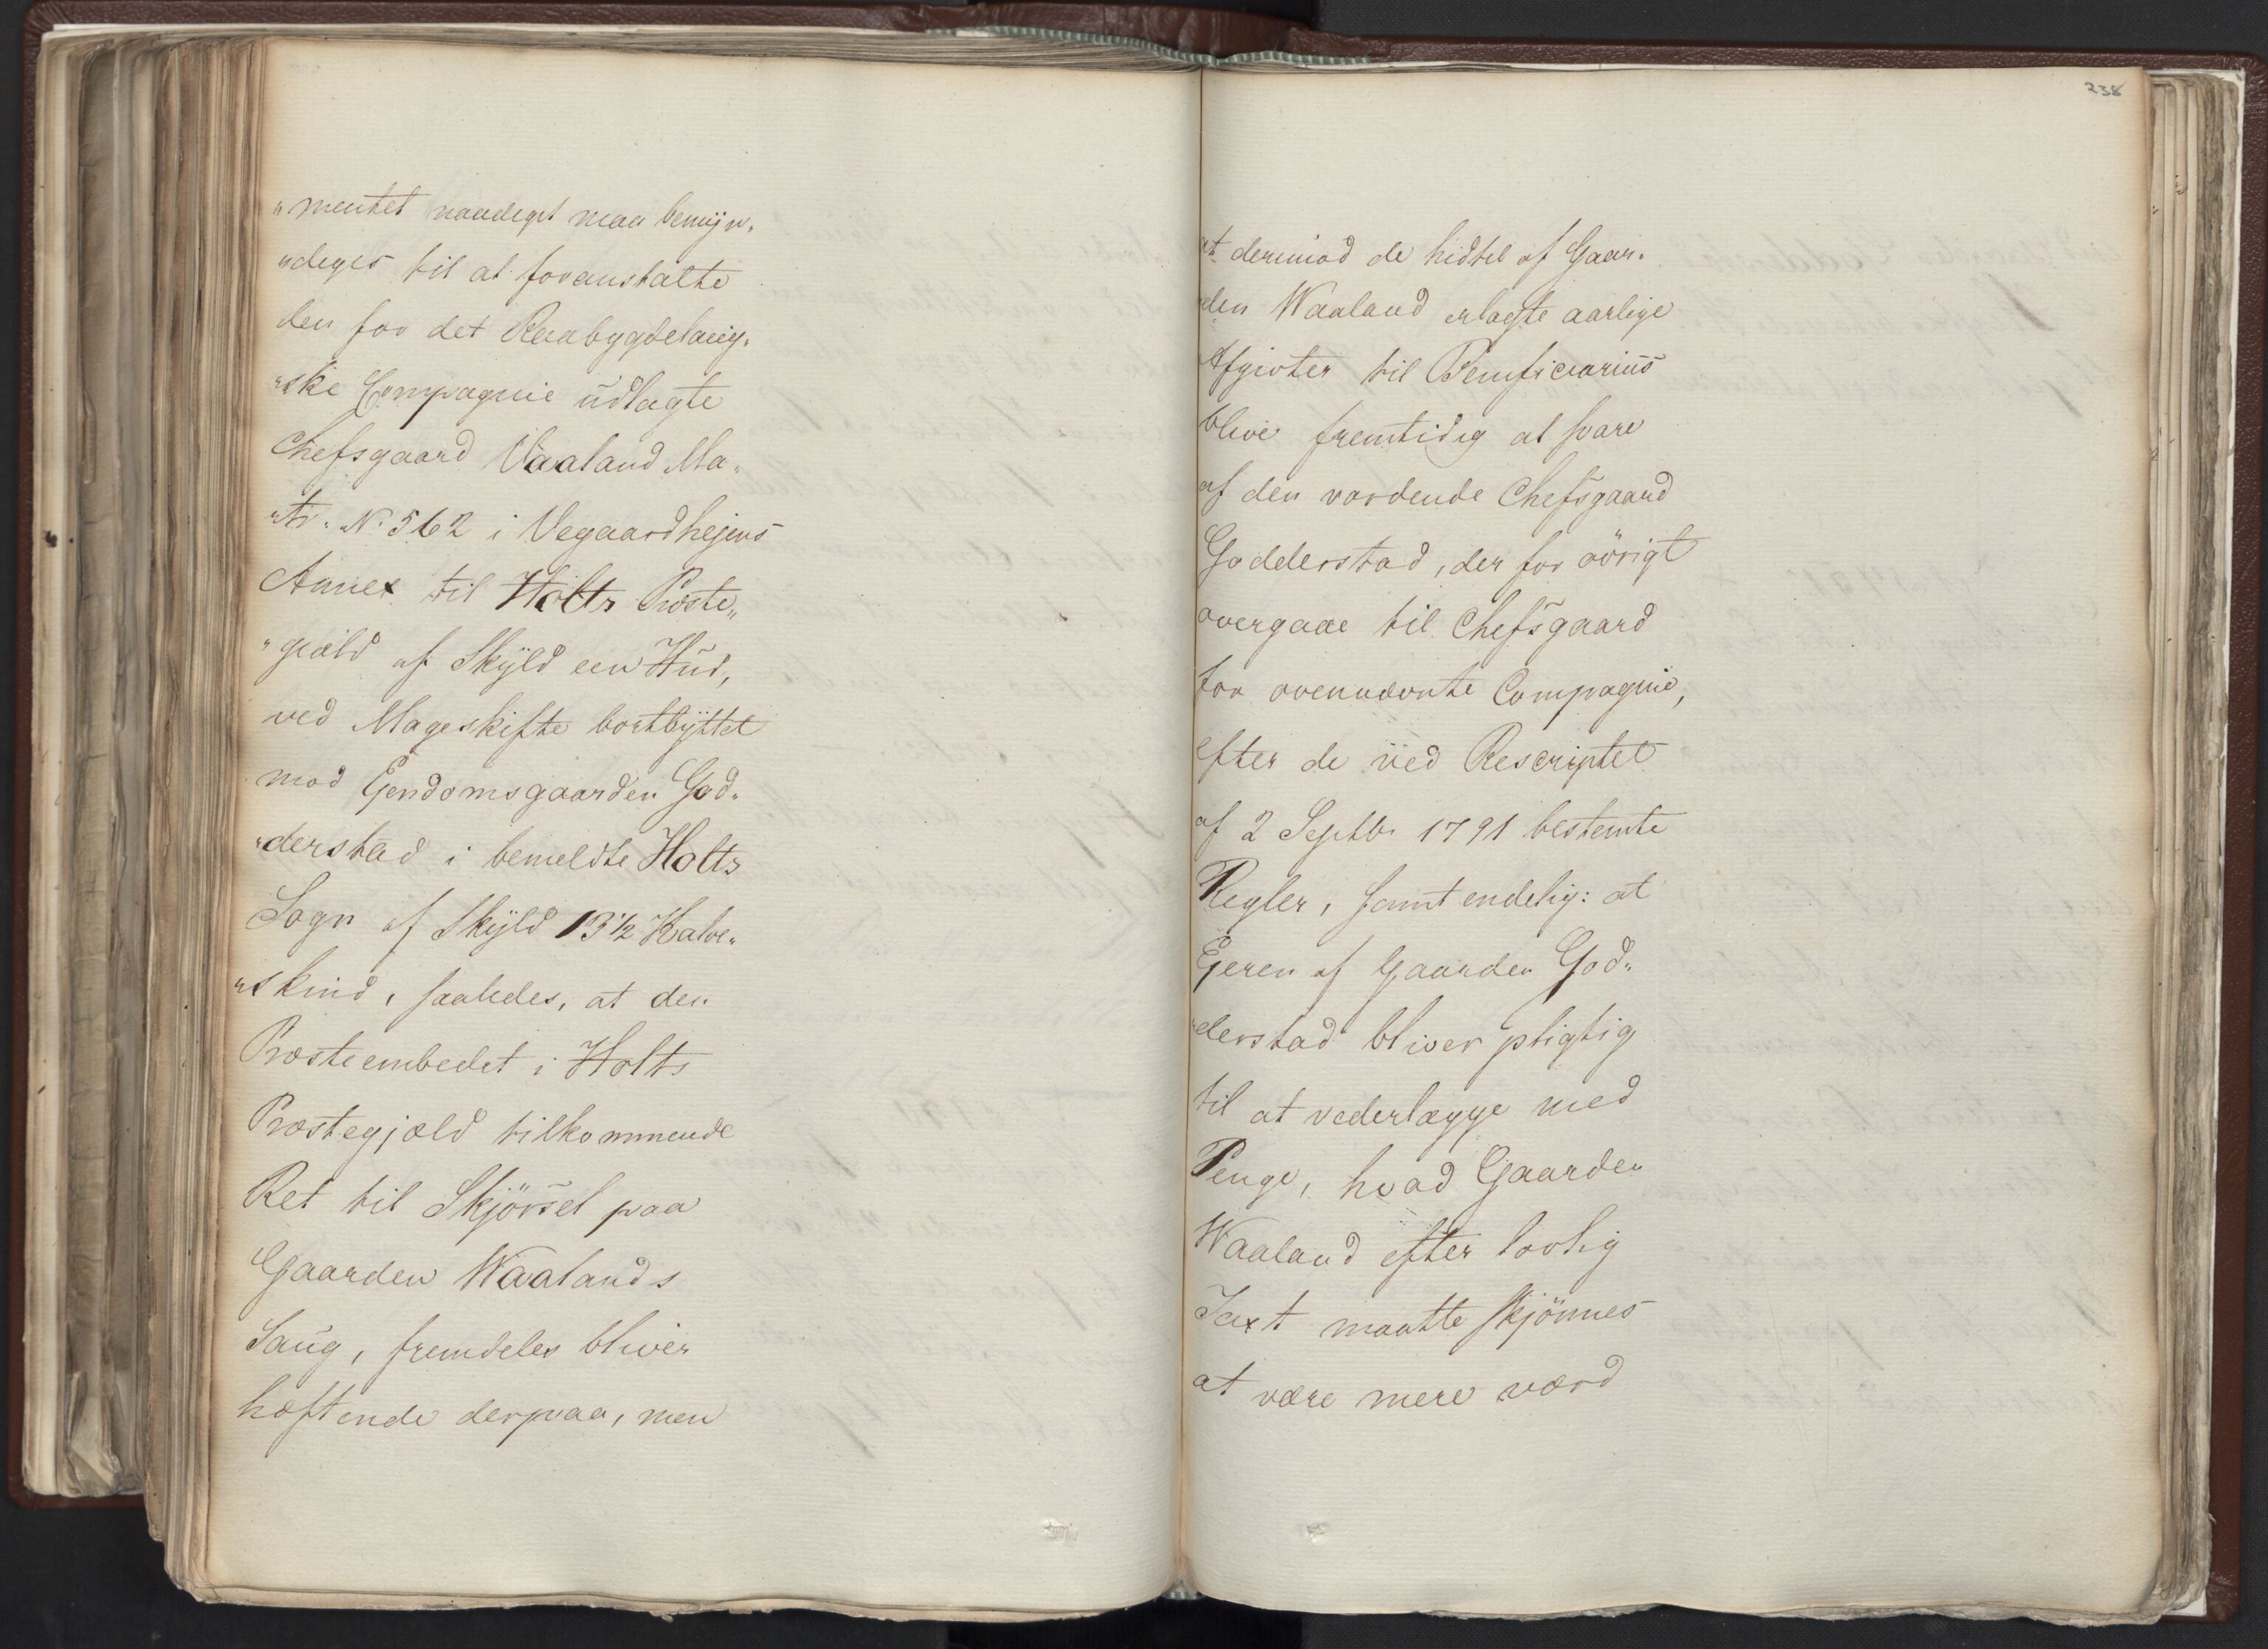 „mentet naadigst maa bemyn„
„diges til at foranstalte
den for det Raabygdelaug„
„ske Compagnie udlagte
Chefsgaard Vaaland Ma„
„tr. No 562 i Vegaardhejens
Annex til Holts Præste„
„giæld af Skyld een Hud,
ved Mageskifte bortbyttet
mod Ejendomsgaarden God„
„derstad i bemeldte Holts
Sogn af Skyld 13½ Kalve„
„skind, saaledes, at den
Præsteembedet i Holts
Præstegjæld tilkommende
Ret til Skjørsel paa
Gaarden Waalands
Saug, fremdeles bliver
hæftende derpaa, men
238
at derimod de hidtil af Gaar„
den Waaland erlagte aarlige
Afgivter til Beneficiarius
blive fremtidig at svare
af den vordende Chefsgaard
Godderstad, der for øvrigt
overgaae til Chefsgaard
for ovennævnte Compagnie,
efter de ved Rescriptet
af 2 Septbr 1791 bestemte
Regler, samt endelig: at
Ejeren af Gaarden God„
„derstad bliver pligtig
til at vederlægge med
Penge, hvad Gaarden
Waaland efter lovlig
Taxt maatte skjønnes
at være mere værd